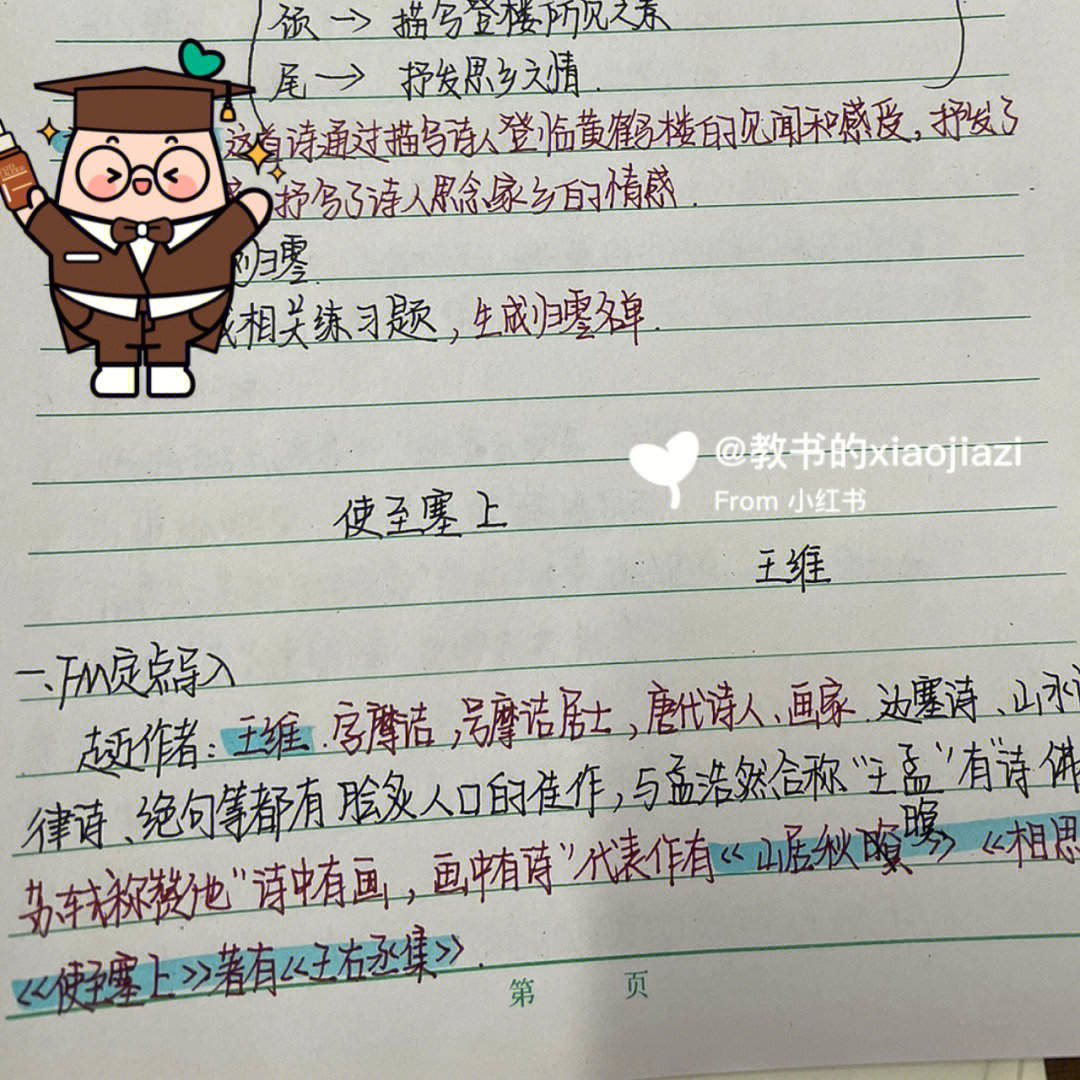 颔→描写登楼所见之景
尾→抒发思乡之情.
这首诗通过描写诗人登临黄鹤楼的见闻和感受,抒发了
抒写了诗人思念家乡的情感.
归零.
相关练习题,生成归零名单.
@教书的xiaojiazi
From 小红书
使至塞上
王维
一、FM定点导入
走近作者:王维.字摩诘,号摩诘居士,唐代诗人、画家.边塞诗、山水
律诗、绝句等都有脍炙人口的佳作,与孟浩然合称“王孟”有“诗佛
暝
苏轼称赞他“诗中有画,画中有诗”代表作有《山居秋》《相思
《使至塞上》著有《王右丞集》.
第 页